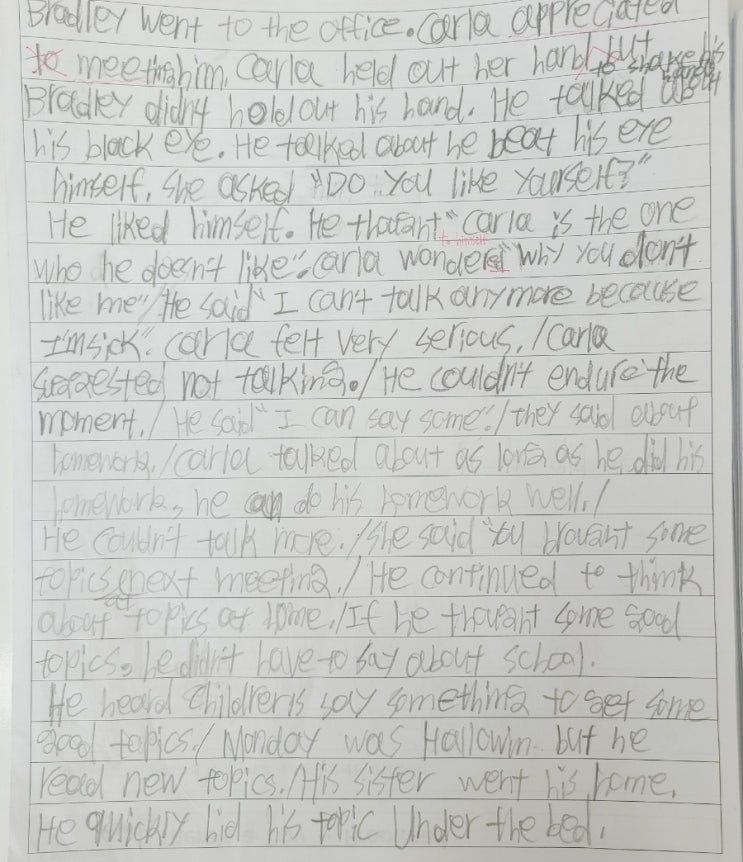 Bradley went to the office. Carla appreciated
to meeting him. Carla held out her hand but to shake his hands
Bradley didn't hold out his hand. He talked about
his black eye. He talked about he beat his eye
himself. She asked "Do you like yourself?"
He liked himself. He thought "Carla is the one
to himself
who he doesn't like". Carla wondered "Why you don't
like me"/He said "I can't talk anymore because
I'm sick". Carla felt very serious./Carla
suggested not talking./He couldn't endure the
moment./He said "I can say some"./they said about
homework./Carla talked about as long as he did his
homework, he can do his homework well./
He couldn't talk more./She said "You brought some
topics next meeting./He continued to think
about topics at home./If he thought some good
topics, he didn't have to say about school.
He heard children's say something to get some
good topics./Monday was Hallowin but he
read new topics./His sister went his home.
He quickly hid his topic under the bed.